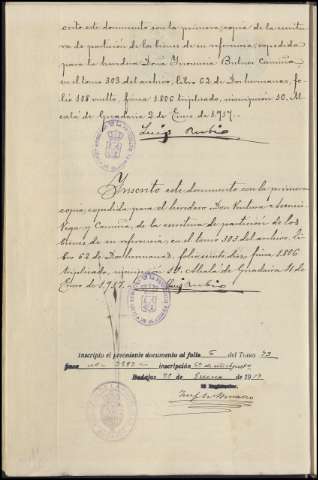 crito este documento con la primera copia de la escritu
ra de partición de los bienes de su referencia, expedida
para la heredera Doña
en el tomo 303 del archivo, libro 62 de Dos hermanas, fo
lio 118 vuelto, finca 1.806 triplicado, inscripción 10. Al
calá de Guadaira 2 de Enero de 1917.
Luis Rubio
Inscrito este documento con la primera
copia, expedida para el heredero Don
Vega y de la escritura de partición de los
bienes de su referencia, en el tomo 303 del archivo, li
bro 62 de Dos hermanas, folio ciento diez, finca 1.806
triplicado, inscripción 10. Alcalá de Guadaira 11 de
Enero de 1917. Luis Rubio
Inscripto el precedente documento al folio 5 del Tomo 73
finca inscripción
Badajoz de de 1917
El Registrador,